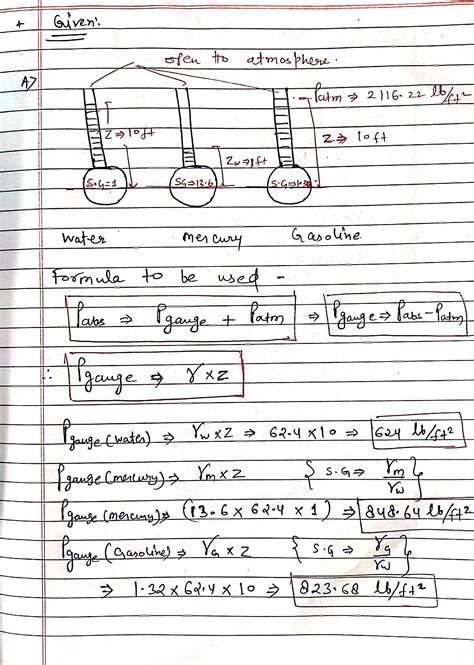 + Given:
open to atmosphere.
A>
Patm ⇒ 2116.22 lb/ft²
Z ⇒ 10 ft
Zw ⇒ 1 ft
Z ⇒ 10 ft
S.G=1
SG⇒13.6
water mercury Gasoline
Formula to be used -
Pabs ⇒ Pgauge + Patm ⇒ Pgauge ⇒ Pabs - Patm
∴ Pgauge ⇒ γ × Z
Pgauge (water) ⇒ γw × Z ⇒ 62.4 × 10 ⇒ 624 lb/ft²
Pgauge (mercury) ⇒ γm × Z { S.G ⇒ γm/γw }
Pgauge (mercury) ⇒ (13.6 × 62.4 × 1) ⇒ 848.64 lb/ft²
Pgauge (Gasoline) ⇒ γG × Z { S.G ⇒ γg/γw }
⇒ 1.32 × 62.4 × 10 ⇒ 823.68 lb/ft²